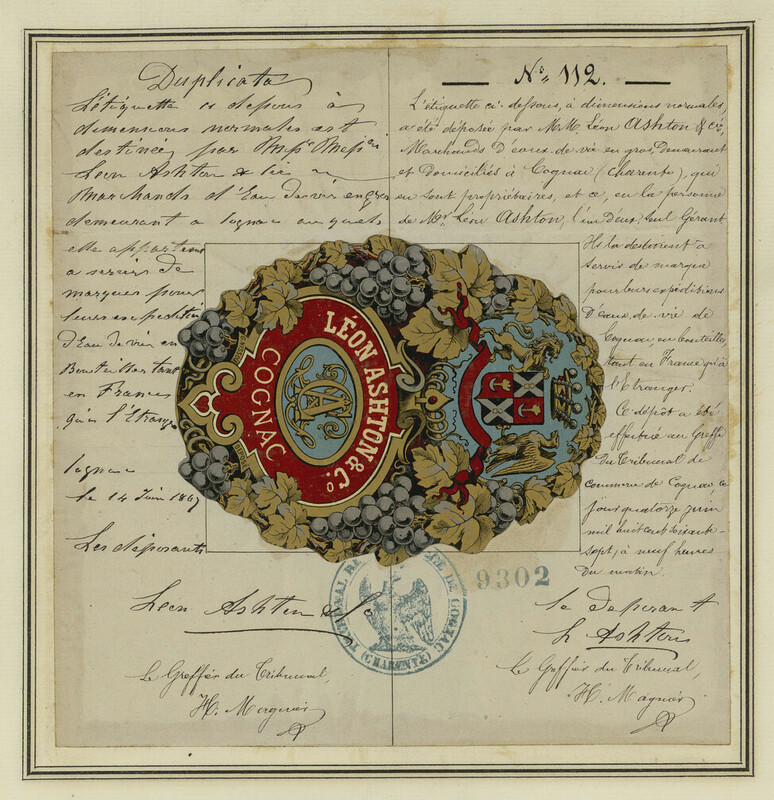 Duplicata
L'étiquette ci dessous à
dimensions normales est
destinée, par
Léon Ashton & Cie
Marchands d'Eau de vie en gros
demeurant a Cognac auxquels
elle appartient
a servir de
marques pour
leurs expéditions
d'Eau de vie en
Bouteilles tant
en France
qu'a l'Etranger
Cognac
le 14 Juin 1867
Les déposants
Léon Ashton & Co
Le Greffier du Tribunal,
No 112.
L'étiquette ci-dessous, à dimensions normales,
a été déposée par M.M. Léon Ashton & Cie,
Marchands D'eaux-de-vie en gros, Demeurant
et Domiciliés à Cognac (Charente), qui
en sont propriétaires, et ce, en la personne
de Mr. Léon Ashton, l'un d'eux, seul Gérant
Ils la destinent a
servir de marque
pour leurs expéditions
D'eaux-de-vie de
Cognac, en bouteilles,
tant en France qu'à
l'Etranger.
Ce dépôt a été
effectué au Greffe
Du Tribunal de
commerce de Cognac, ce
jour quatorze juin
mil huit cent soixante-
sept, à neuf heures
Du matin.
le deposant
L Ashton
Le Greffier du Tribunal,
LÉON ASHTON & Co.
COGNAC
TRIBUNAL DE COGNAC
(CHARENTE)
9302